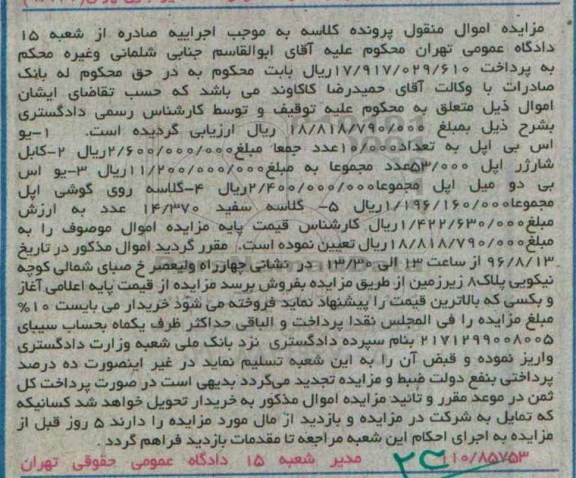 مزایده اموال منقول پرونده کلاسه به موجب اجراییه صادره از شعبه ۱۵
دادگاه عمومی تهران محکوم علیه آقای ابوالقاسم جنابی شلمانی وغیره محکم
به پرداخت ۱۷/۹۱۷/۰۲۹/۶۱۰ریال بابت محکوم به در حق محکوم له بانک
صادرات با وکالت آقای حمیدرضا کاکاوند می باشد که حسب تقاضای ایشان
اموال ذیل متعلق به محکوم علیه توقیف و توسط کارشناس رسمی دادگستری
بشرح ذیل بمبلغ ۱۸/۸۱۸/۷۹۰/۰۰۰ ریال ارزیابی گردیده است. ۱-یو
اس بی اپل به تعداد۱۰/۰۰۰عدد جمعا مبلغ۲/۶۰۰/۰۰۰/۰۰۰ریال ۲-کابل
شارژر اپل ۵۳/۰۰۰عدد مجموعا به مبلغ۱۱/۲۰۰/۰۰۰/۰۰۰ریال ۳-یو اس
بی دو میل اپل مجموعا۲/۴۰۰/۰۰۰/۰۰۰ریال ۴-گلاسه روی گوشی اپل
مجموعا۱/۱۹۶/۱۶۰/۰۰۰ریال ۵- گلاسه سفید ۱۴/۳۷۰ عدد به ارزش
مبلغ۱/۴۲۲/۶۳۰/۰۰۰ریال کارشناس قیمت پایه مزایده اموال موصوف را به
مبلغ۱۸/۸۱۸/۷۹۰/۰۰۰ریال تعیین نموده است. مقرر گردید اموال مذکور در تاریخ
۹۶/۸/۱۳ از ساعت ۱۳ الی ۱۳/۳۰ در نشانی چهارراه ولیعصر خ صبای شمالی کوچه
نیکویی پلاک۸ زیرزمین از طریق مزایده بفروش برسد مزایده از قیمت پایه اعلامی آغاز
و بکسی که بالاترین قیمت را پیشنهاد نماید فروخته می شود خریدار می بایست ۱۰%
مبلغ مزایده را فی المجلس نقدا پرداخت و الباقی حداکثر ظرف یکماه بحساب سیبای
۲۱۷۱۲۹۹۰۰۸۰۰۵ بنام سپرده دادگستری نزد بانک ملی شعبه وزارت دادگستری
واریز نموده و قبض آن را به این شعبه تسلیم نماید در غیر اینصورت ده درصد
پرداختی بنفع دولت ضبط و مزایده تجدید می‌گردد بدیهی است در صورت پرداخت کل
ثمن در موعد مقرر و تائید مزایده اموال مذکور به خریدار تحویل خواهد شد کسانیکه
که تمایل به شرکت در مزایده و بازدید از مال مورد مزایده را دارند ۵ روز قبل از
مزایده به اجرای احکام این شعبه مراجعه تا مقدمات بازدید فراهم گردد.
۱۱۰/۸۵۷۵۳ مدیر شعبه ۱۵ دادگاه عمومی حقوقی تهران